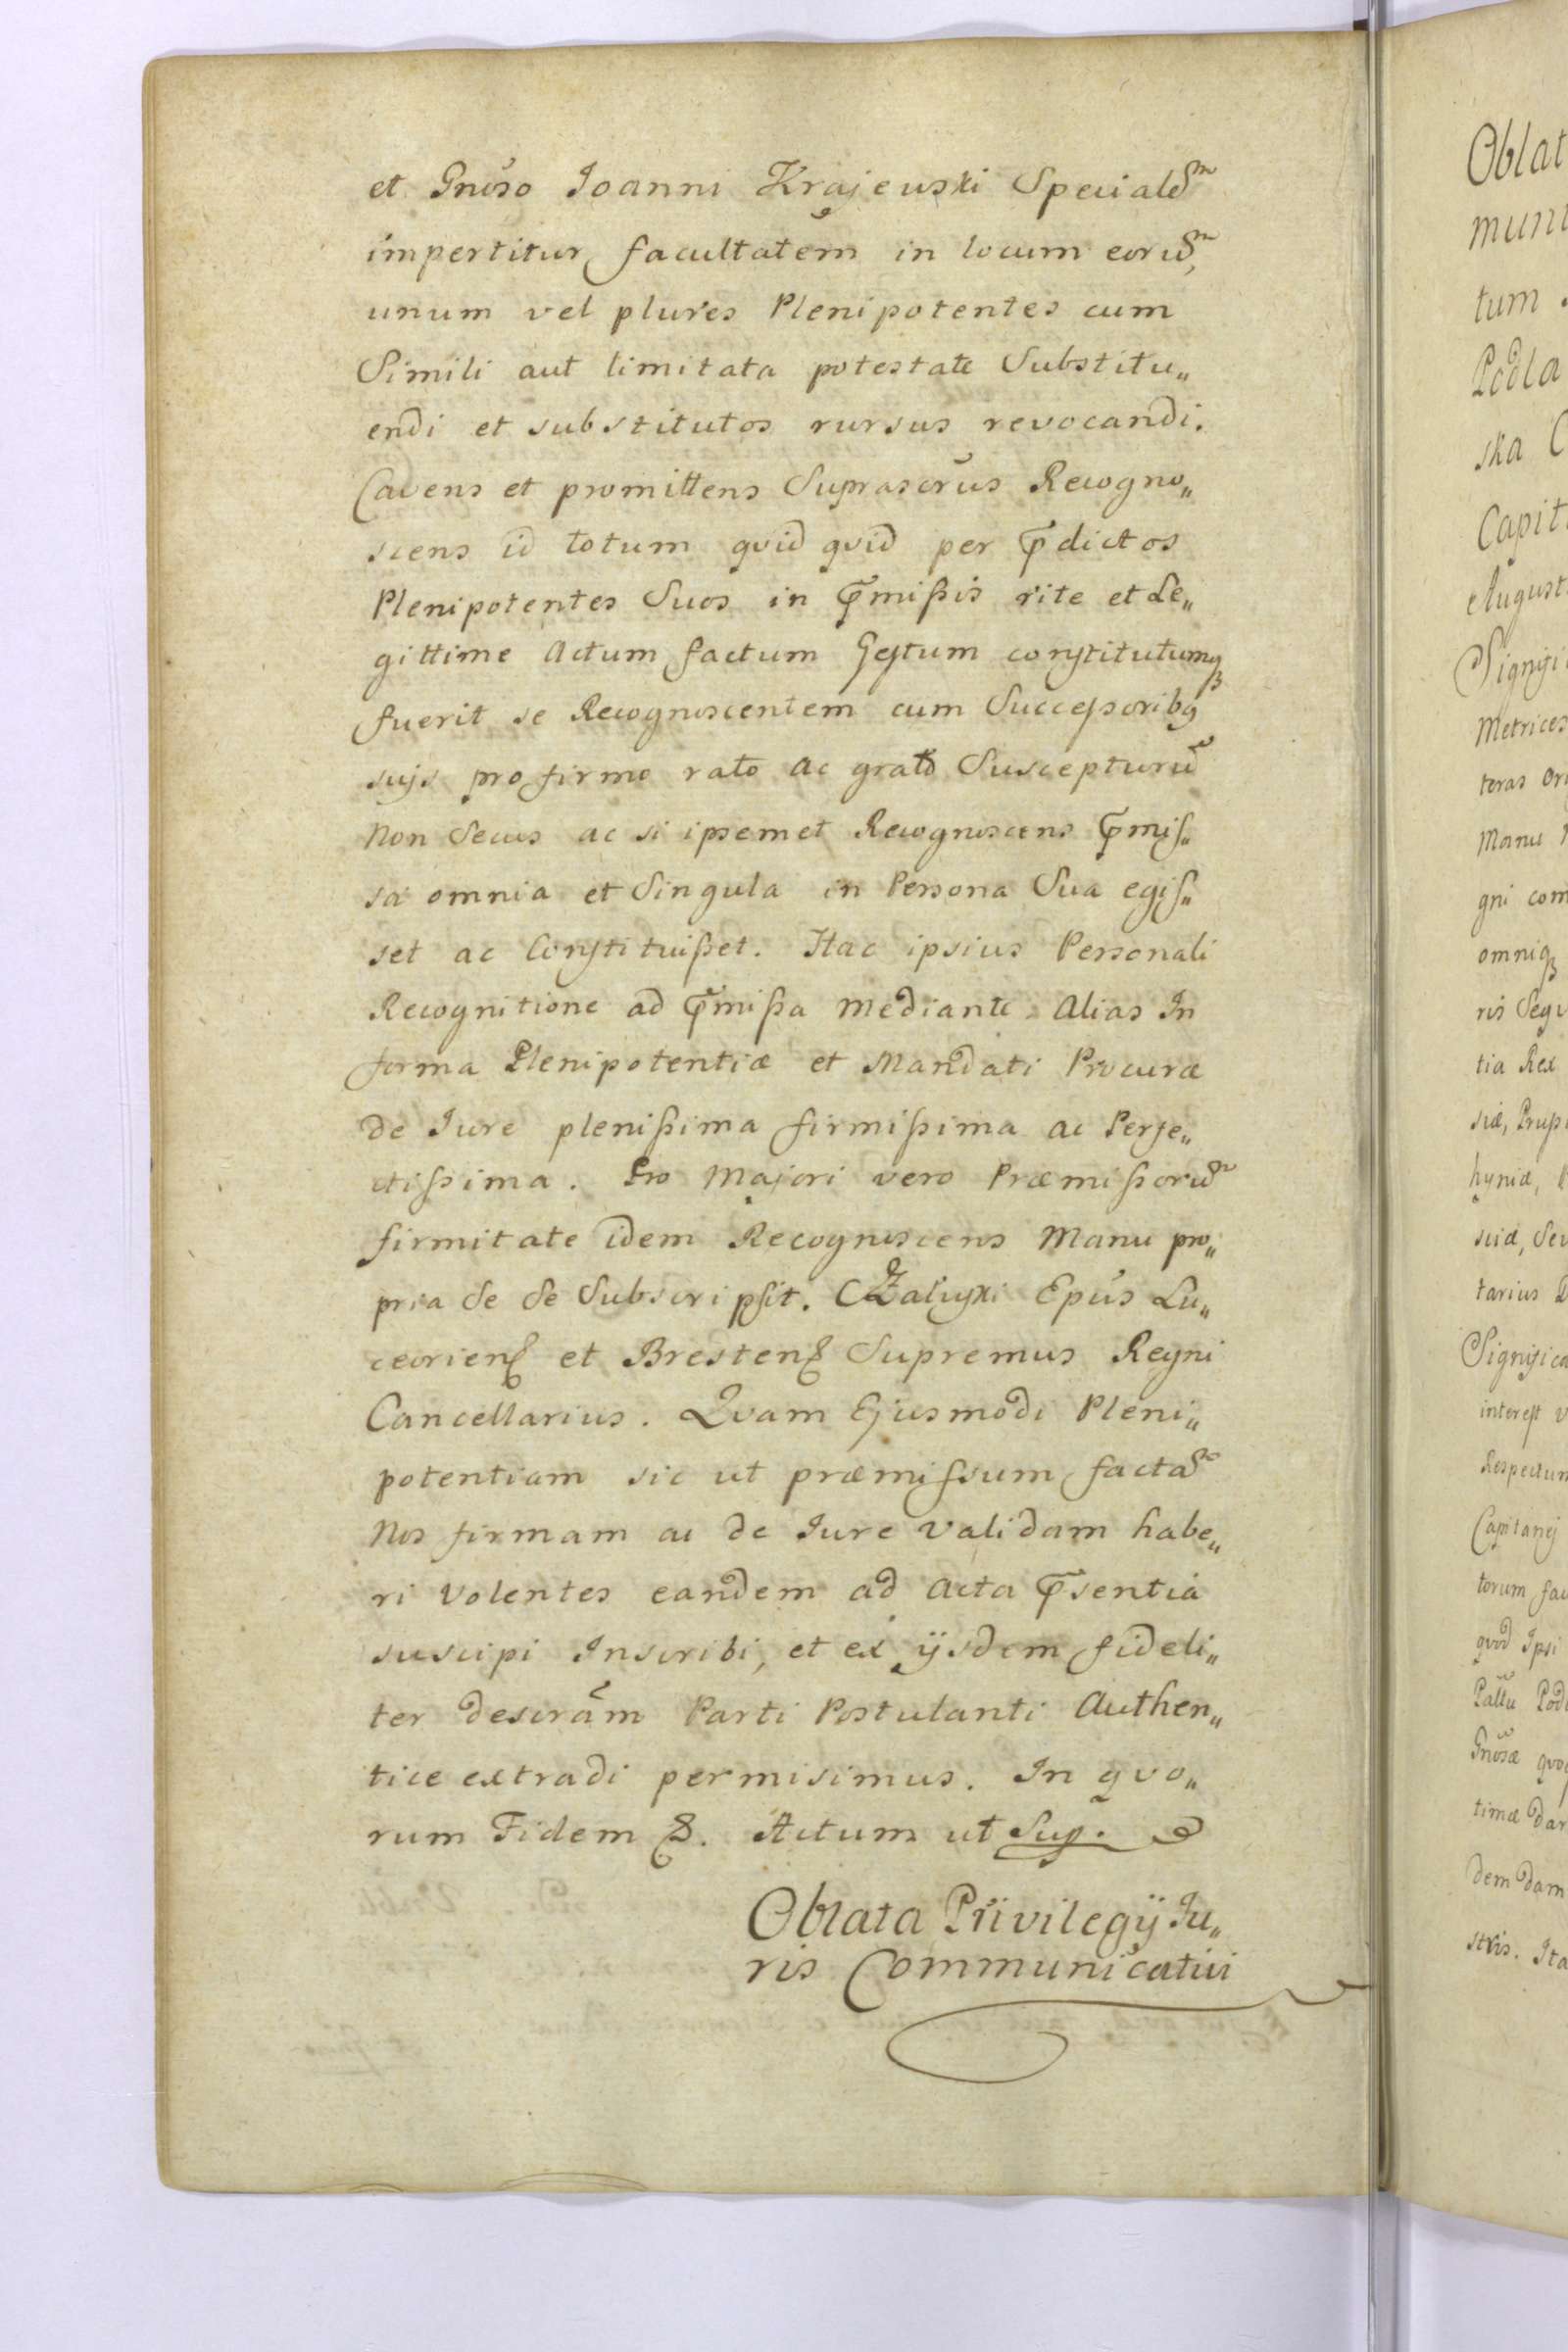 et Gnõso Joanni Krajewski Specialẽ
impertitur facultatem in locum eorũ,
unum vel plures Plenipotentes cum
Simili aut limitata potestate Substitu„
endi et substitutos rursus revocandi.
Cavens et promittens Suprascr̃us Recogno„
scens id totum qvid qvid per p̃dictos
Plenipotentes Suos in p̃mißis rite et Le„
gittime Actum factum Gestum constitutumqꝫ
fuerit se Recognoscentem cum Successoribꝯ
suijs pro firmo rato ac grato Suscepturũ
Non Secus ac si ipsemet Recognoscens p̃mis„
sa omnia et Singula in Persona Sua egis„
set ac Constituißet. Hac ipsius Personali
Recognitione ad p̃mißa mediante. Alias In
forma Plenipotentiæ et Mandati Procuræ
de Jure plenißima firmißima ac Perfe„
ctißima. Pro Majori vero Præmißorũ
firmitate idem Recognoscens Manu pro„
pria Se Se Subscripsit. Załuski Ep̃us Lu„
ceorienß et Brestenß Supremus Regni
Cancellarius. Qvam Ejusmodi Pleni„
potentiam sic ut præmissum factã
Nos firmam ac de Jure validam habe„
ri Volentes eandem ad Acta p̃sentia
suscipi Inscribi, et ex ijsdem fideli„
ter descr̃am Parti Postulanti Authen„
tice extradi permisimus. In qvo„
rum Fidem &. Actum ut Sup.
Oblata Privilegij Ju„
ris Communicativi
Oblat
muni
tum
Podla
ska C
Capit
August
Signifi
Metrices
teras Ori
Manu
gni com
omniqꝫ
ris Seqv
tia Rex
siæ, Pruß
hyniæ,
sciæ, Sev
tarius D
Significa
interest v
Respectum
Capitanej
torum fac
qvod Ipsi
Pallũ Podl
Gnõsæ qvoq
timæ dar
dem dam
stris. Ita